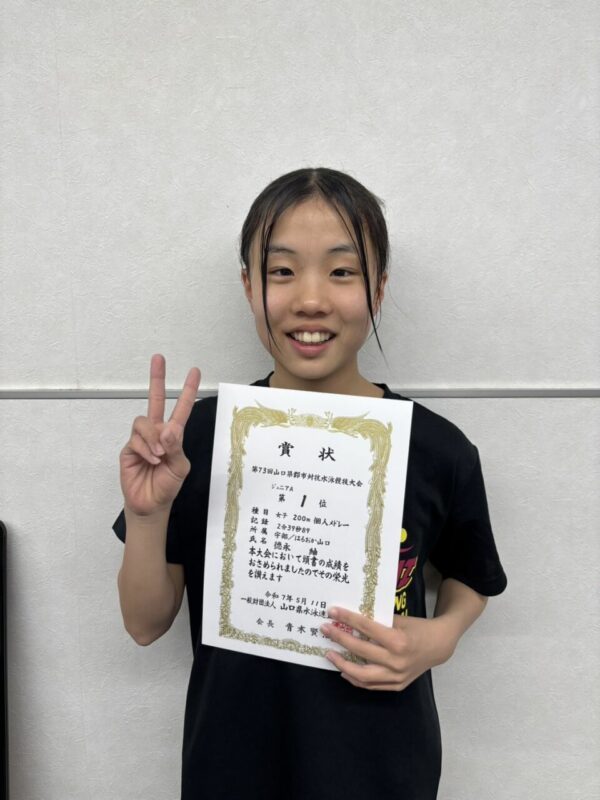 賞状
第73回山口県郡市対抗水泳競技大会
ジュニアA
第 1 位
種目 女子 200m 個人メドレー
記録 2分39秒89
所属 宇部/はらおか山口
氏名 徳永 紬
本大会において頭書の成績を
おさめられましたのでその栄光
を讃えます
令和7年5月11日
一般財団法人 山口県水泳連
会長 青木
NG